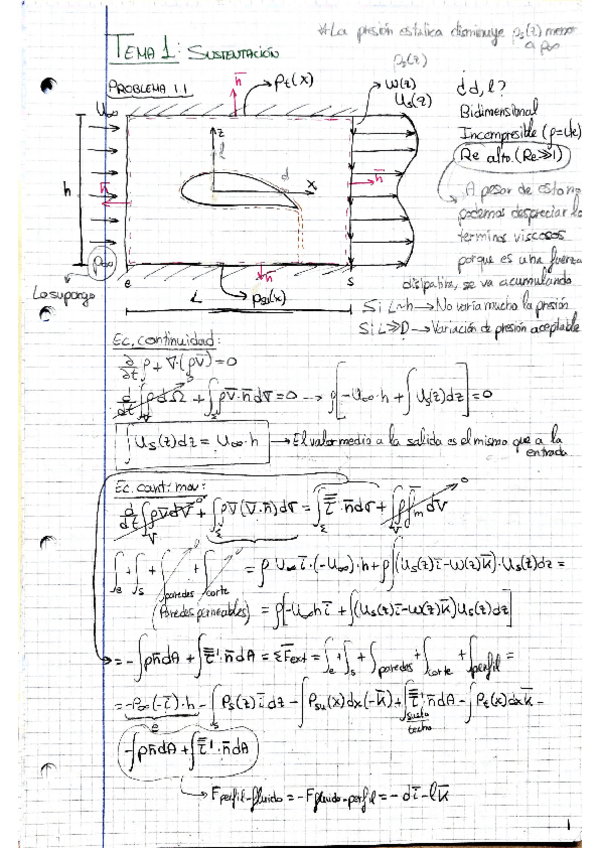 *La presión estática disminuye p_s(z) menor
a p∞
TEMA 1: SUSTENTACIÓN
p_s(z)
PROBLEMA 1.1
n̄
p_t(x)
w(z)
U_s(z)
¿d,l?
U∞
Bidimensional
Incompresible (ρ=cte)
Re alto. (Re≫1)
z
l
d
x
h
n̄
n̄
A pesar de esto no
podemos despreciar los
terminos viscosos
porque es una fuerza
disipativa, se va acumulando
p∞
Lo supongo
e
n̄
s
L
p_su(x)
Si L~h → No varía mucho la presión
Si L≫D → Variación de presión aceptable
Ec. continuidad:
∂/∂t ρ + ∇·(ρv̄) = 0
d/dt ∫ρdΩ + ∫ρv̄·n̄dσ = 0 → ρ[-U∞·h + ∫U_s(z)dz] = 0
∫U_s(z)dz = U∞·h → El valor medio a la salida es el mismo que a la
entrada
Ec. cant. mov:
d/dt ∫ρv̄dV + ∫ρv̄(v̄·n̄)dσ = ∫τ̿·n̄dσ + ∫ρf̄_m dV
∫e + ∫s + ∫paredes + ∫corte = ρU∞ī·(-U∞)·h + ρ∫(U_s(z)ī - w(z)k̄)·U_s(z)dz =
(Paredes permeables) = ρ[-U∞hī + ∫(U_s(z)ī - w(z)k̄)U_s(z)dz]
= -∫pn̄dA + ∫τ̿'·n̄dA = ΣF̄ext = ∫e + ∫s + ∫paredes + ∫corte + ∫perfil =
= -p∞(-ī)·h - ∫p_s(z)ī dz - ∫p_su(x)dx(-k̄) + ∫τ̿'·n̄dA - ∫p_t(x)dx k̄ -
e
s
suelo
techo
-∫pn̄dA + ∫τ̿'·n̄dA
→ F perfil-fluido = -F fluido-perfil = -dī - lk̄
1